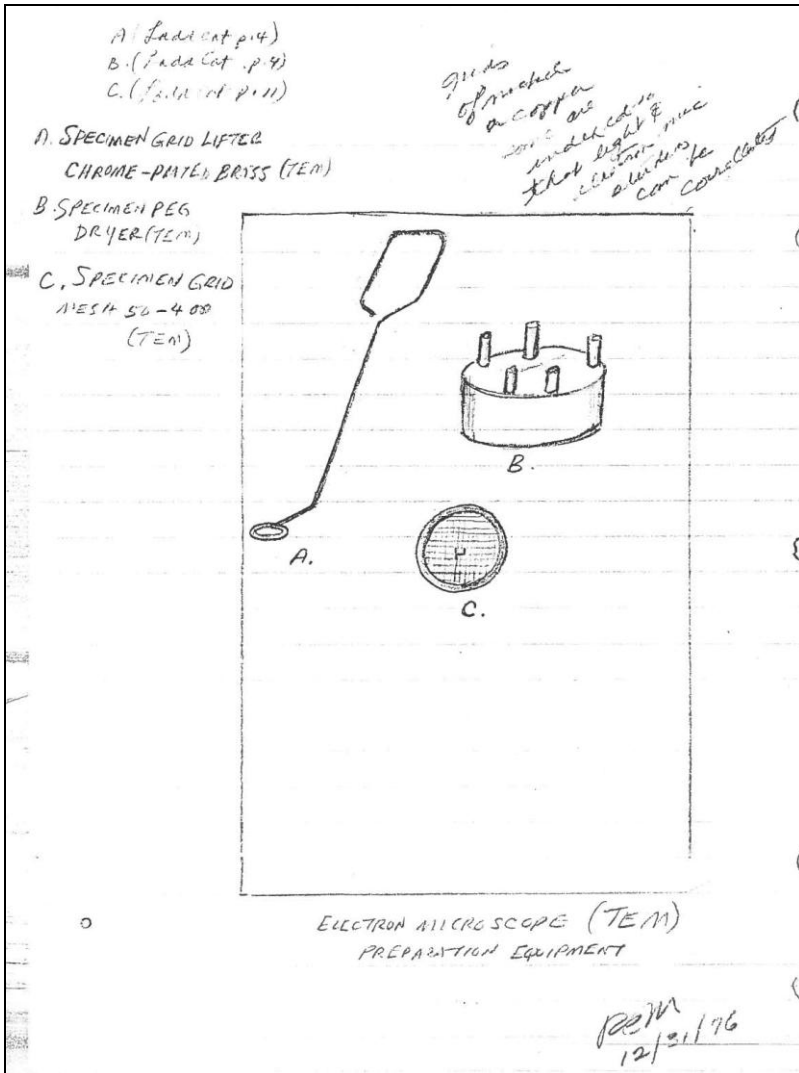 A (Ladd Cat p.4)
B. (Ladd Cat. p.4)
C. (Ladd Cat p.11)
grids
of nickel
or copper
some are
indexed so
that light &
electron mic
can be
correlated
A. SPECIMEN GRID LIFTER
CHROME-PLATED BRASS (TEM)
B. SPECIMEN PEG
DRYER (TEM)
C. SPECIMEN GRID
MESH 50-400
(TEM)
A.
B.
C.
ELECTRON MICROSCOPE (TEM)
PREPARATION EQUIPMENT
12/31/76